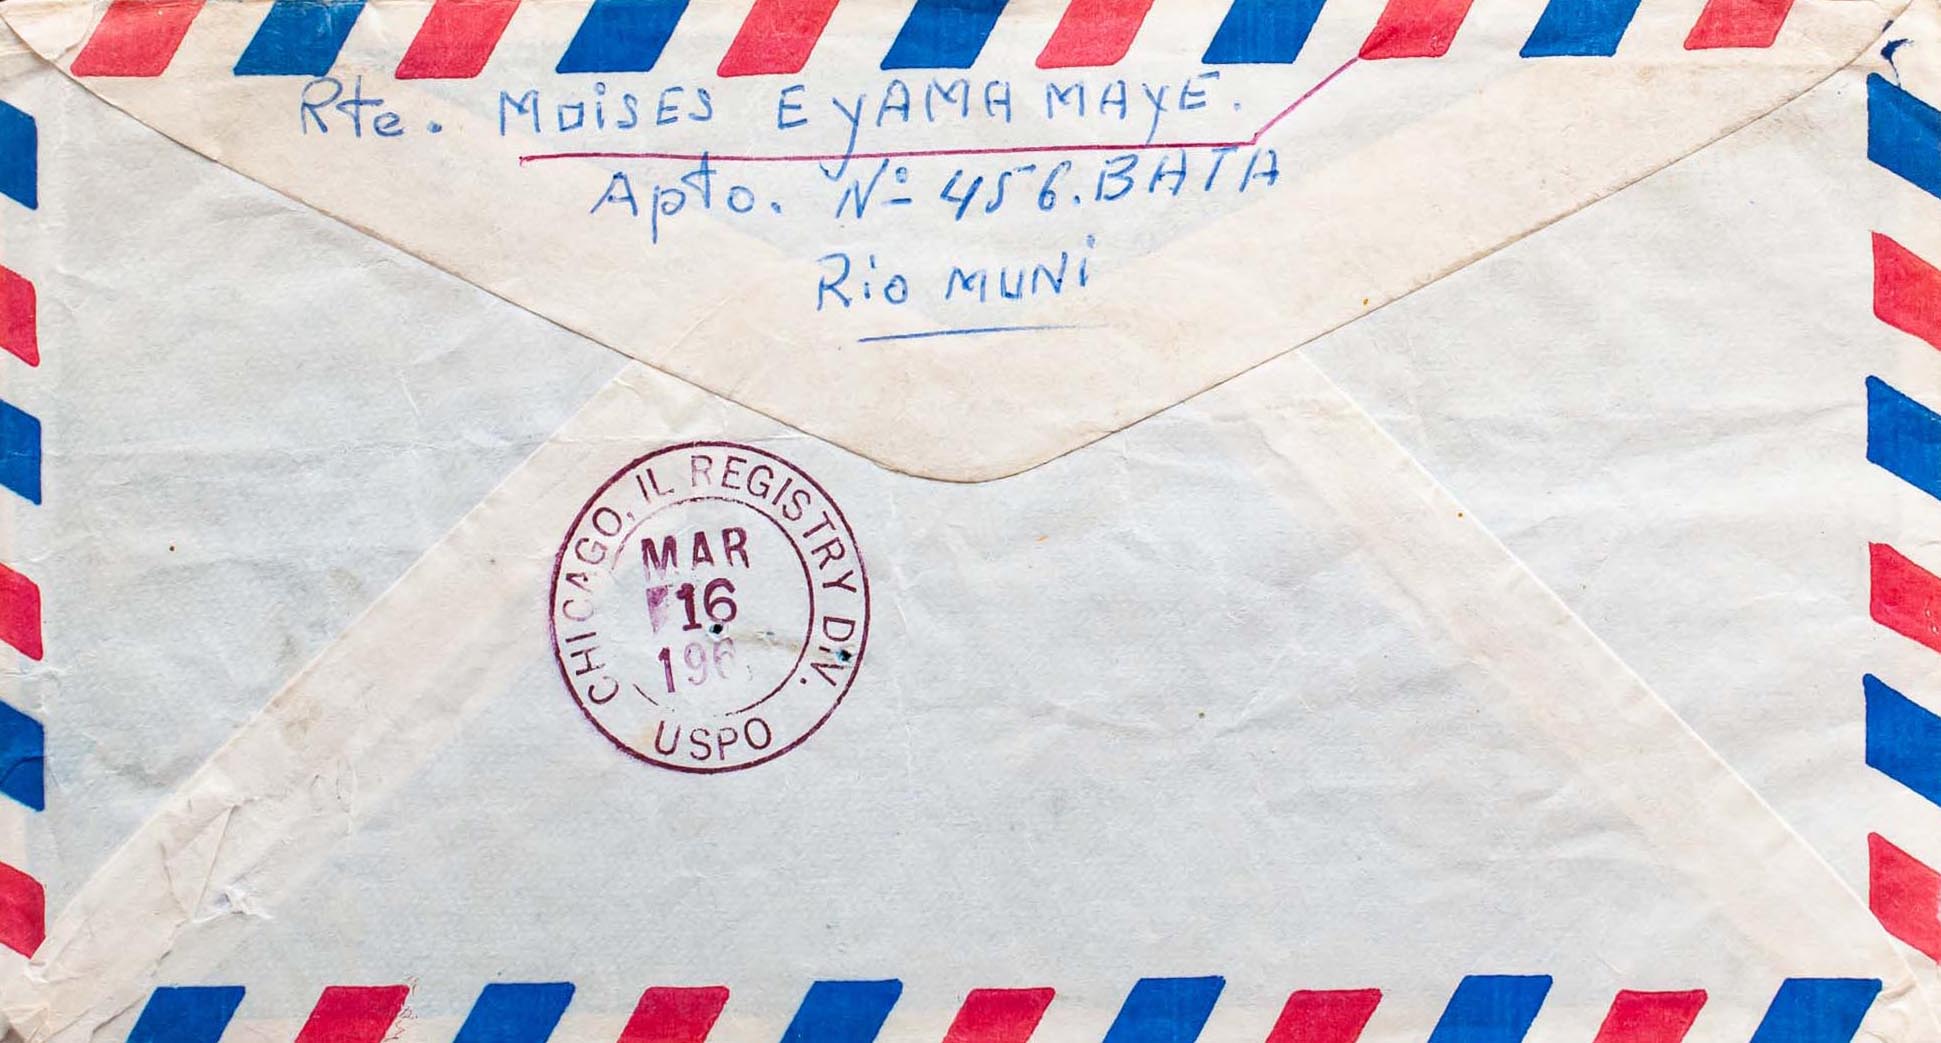 Rte. MOISES EYAMA MAYE.
Apto. Nº 456. BATA
Rio MUNI
CHICAGO, IL REGISTRY DIV.
MAR
16
USPO